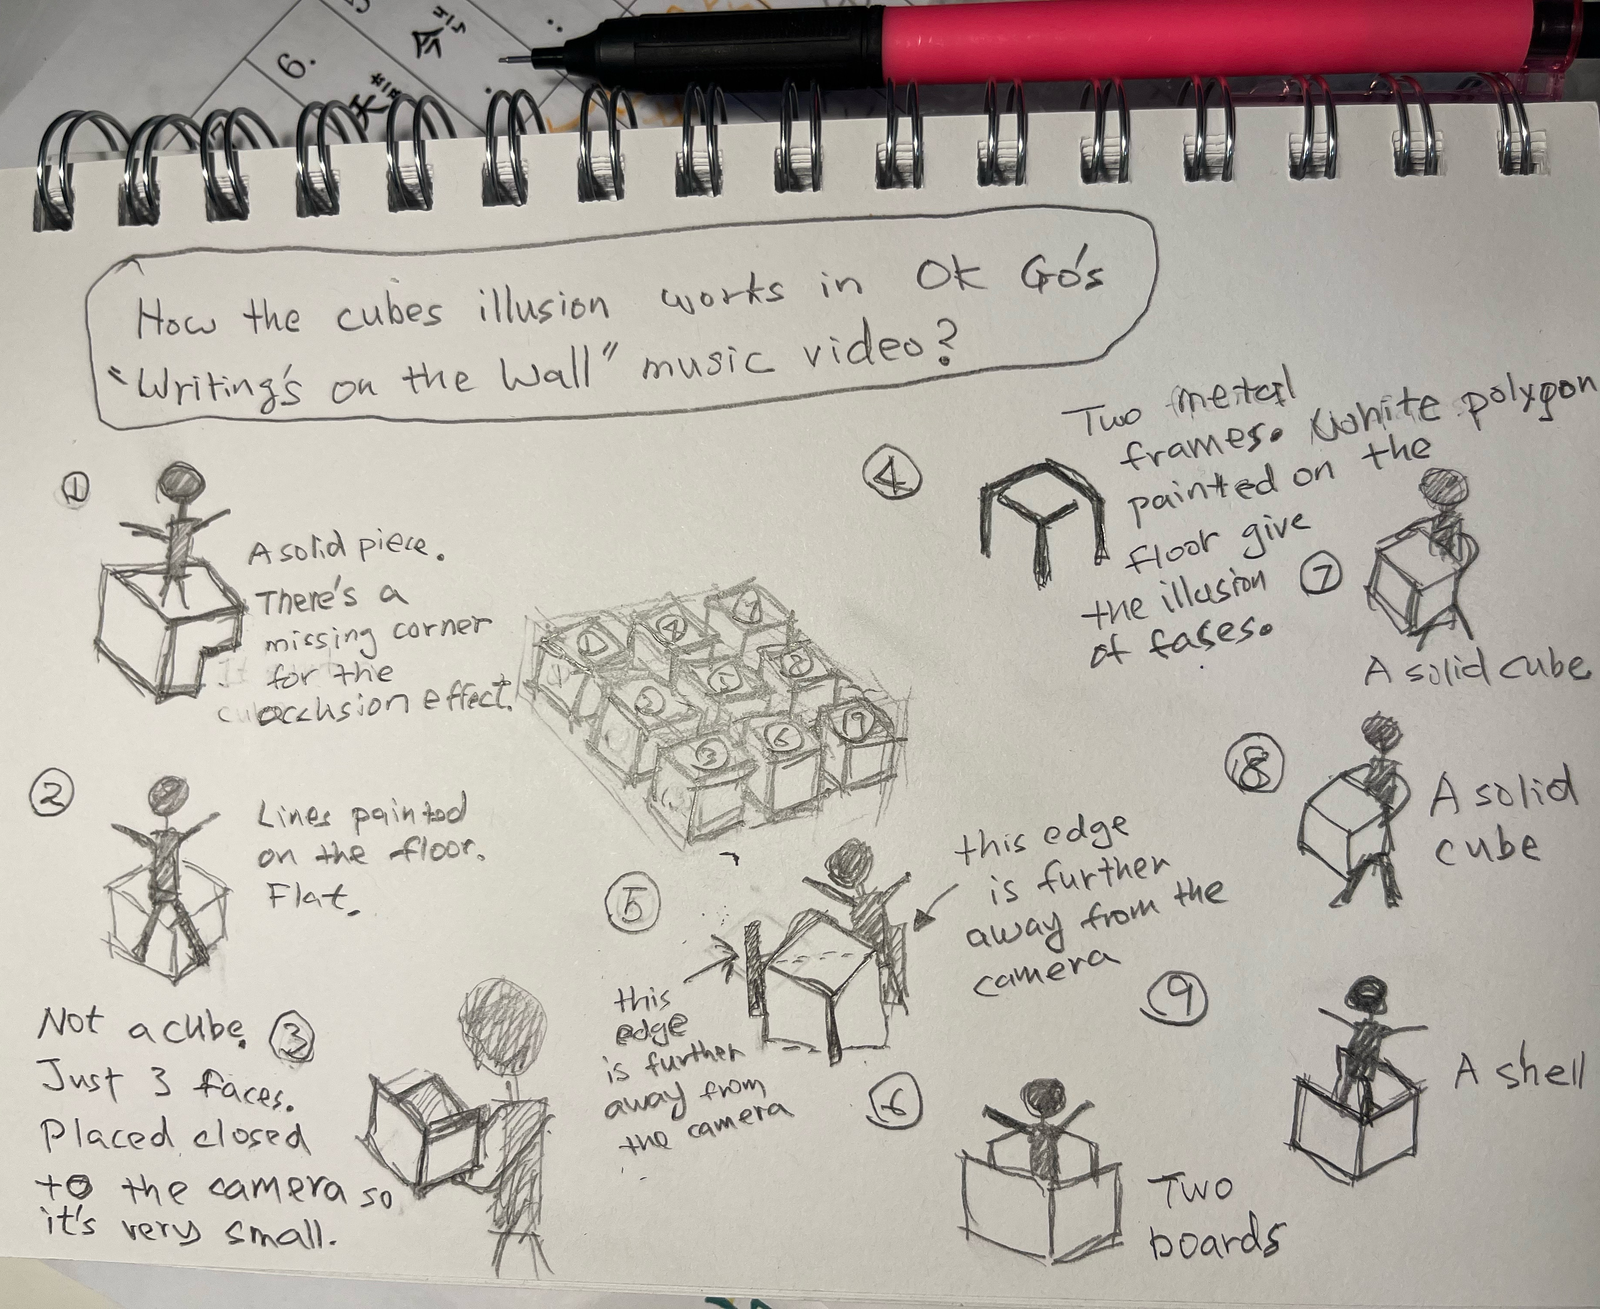 6.
How the cubes illusion works in OK Go's
"Writing's on the Wall" music video?
①
A solid piece.
There's a
missing corner
for the
occlusion effect.
②
Lines painted
on the floor.
Flat.
③
Not a cube.
Just 3 faces.
Placed closed
to the camera so
it's very small.
① ④ ⑦
② ⑤ ⑧
③ ⑥ ⑨
④
Two metal
frames. White polygon
painted on the
floor give
the illusion
of fases.
⑤
this
edge
is further
away from
the camera
this edge
is further
away from the
camera
⑥
Two
boards
⑦
A solid cube
⑧
A solid
cube
⑨
A shell